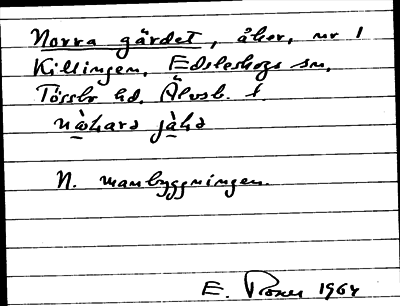 Norra gärdet, åker, nr 1
Killingen, Edsleskogs sn,
Tössbo hd. Älvsb. l.
nàhara jàhɔ
N. manbyggningen.
E. 1964